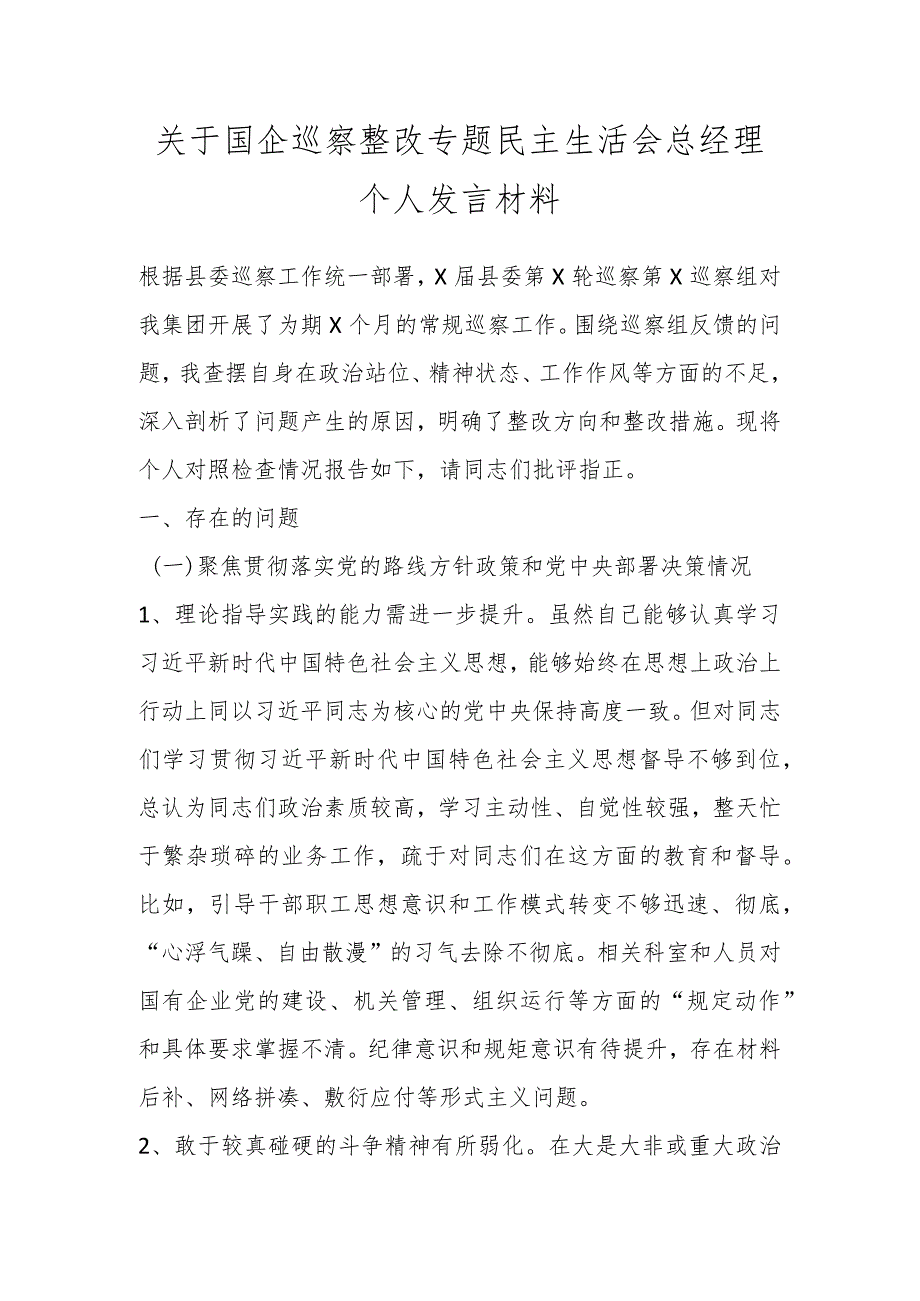 关于国企巡察整改专题民主生活会总经理
个人发言材料
根据县委巡察工作统一部署，X届县委第X轮巡察第X巡察组对
我集团开展了为期X个月的常规巡察工作。围绕巡察组反馈的问
题，我查摆自身在政治站位、精神状态、工作作风等方面的不足，
深入剖析了问题产生的原因，明确了整改方向和整改措施。现将
个人对照检查情况报告如下，请同志们批评指正。
一、存在的问题
(一)聚焦贯彻落实党的路线方针政策和党中央部署决策情况
1、理论指导实践的能力需进一步提升。虽然自己能够认真学习
习近平新时代中国特色社会主义思想，能够始终在思想上政治上
行动上同以习近平同志为核心的党中央保持高度一致。但对同志
们学习贯彻习近平新时代中国特色社会主义思想督导不够到位，
总认为同志们政治素质较高，学习主动性、自觉性较强，整天忙
于繁杂琐碎的业务工作，疏于对同志们在这方面的教育和督导。
比如，引导干部职工思想意识和工作模式转变不够迅速、彻底，
“心浮气躁、自由散漫”的习气去除不彻底。相关科室和人员对
国有企业党的建设、机关管理、组织运行等方面的“规定动作”
和具体要求掌握不清。纪律意识和规矩意识有待提升，存在材料
后补、网络拼凑、敷衍应付等形式主义问题。
2、敢于较真碰硬的斗争精神有所弱化。在大是大非或重大政治